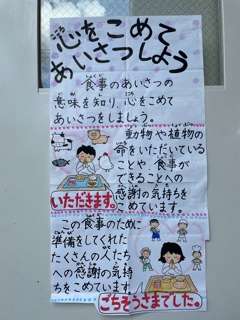 心をこめて
あいさつしよう
食事のあいさつの
意味を知り、心をこめて
あいさつをしましょう。
動物や植物の
命をいただいている
ことや食事が
できることへの
感謝の気持ち
をこめています。
いただきます。
この食事のために
準備をしてくれた
たくさんの人たち
への感謝の気持
ちをこめています。
ごちそうさまでした。